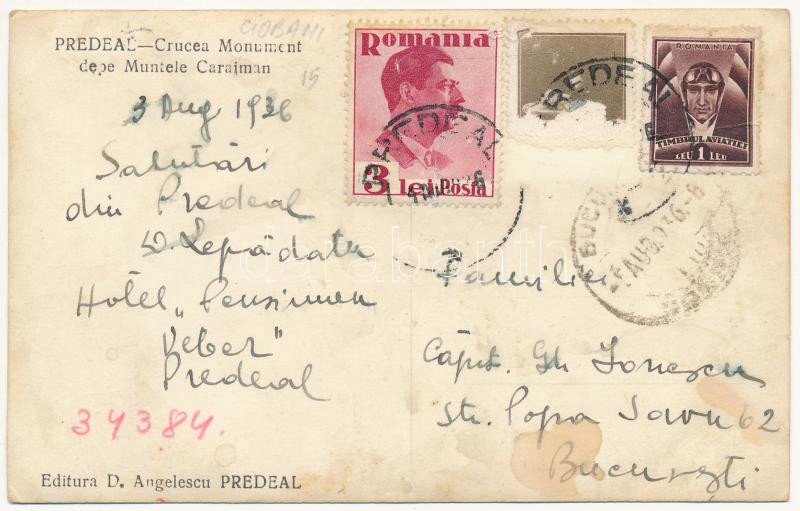 CIOBANI
15
PREDEAL—Crucea Monument
depe Muntele Caraiman
3 Aug 1936
Salutări
din Predeal
D. Lepădatu
Hotel „Pensiunea
Veber"
Predeal
34384.
Editura D. Angelescu PREDEAL
Romania
3 lei Posta
PREDEAL
PREDEAL
ROMANIA
TIMBRUL AVIATIEI
LEU 1 LEU
AUG. 936
Familiei
Căpit. Gh Ionescu
str. Popa Savu 62
București
darabanth